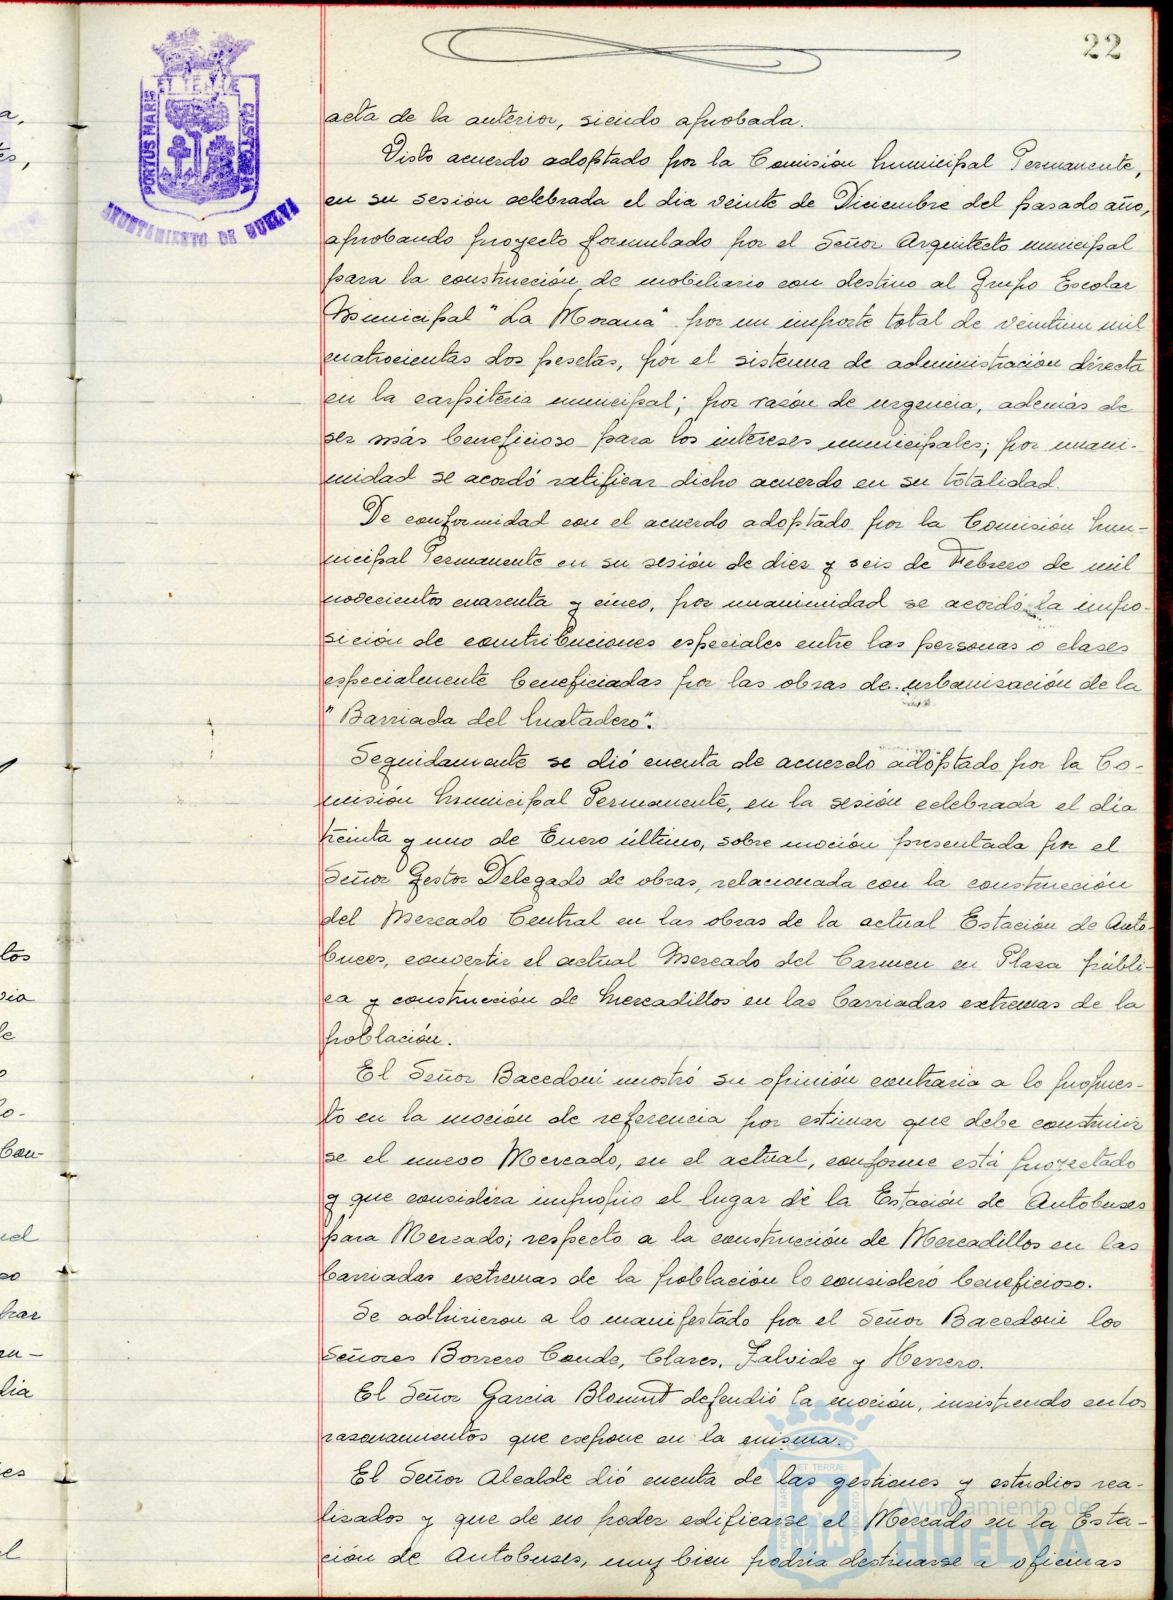 22
PORTUS MARIS
ET TERRE
CUSTODIA
AYUNTAMIENTO DE HUELVA
acta de la anterior, siendo aprobada.
Visto acuerdo adoptado por la Comisión Municipal Permanente,
en su sesión celebrada el dia veinte de Diciembre del pasado año,
aprobando proyecto formulado por el Señor Arquitecto municipal
para la construcción de mobiliario con destino al Grupo Escolar
Municipal "La Morana" por un importe total de veintiun mil
cuatrocientas dos pesetas, por el sistema de administración directa
en la carpiteria municipal; por razón de urgencia, además de
ser más beneficioso para los intereses municipales; por unani-
midad se acordó ratificar dicho acuerdo en su totalidad.
De conformidad con el acuerdo adoptado por la Comisión Mun-
nicipal Permanente en su sesión de diez y seis de Febrero de mil
novecientos cuarenta y cinco, por unanimidad se acordó la impo-
sición de contribuciones especiales entre las personas o clases
especialmente beneficiadas por las obras de urbanisación de la
"Barriada del Matadero".
Seguidamente se dió cuenta de acuerdo adoptado por la Co-
misión Municipal Permanente, en la sesión celebrada el día
treinta y uno de Enero último, sobre moción presentada por el
Señor Gestor Delegado de obras, relacionada con la construcción
del Mercado Central en las obras de la actual Estación de Auto-
buces, convertir el actual Mercado del Carmen en Plaza públi-
ca y construcción de Mercadillos en las barriadas extremas de la
población.
El Señor Bacedoni mostró su opinión contraria a lo propues-
to en la moción de referencia por estimar que debe construir
se el nuevo Mercado, en el actual, conforme está proyectado
y que considera impropio el lugar de la Estación de Autobuses
para Mercado; respecto a la construcción de Mercadillos en las
barriadas extremas de la población lo consideró beneficioso.
Se adhirieron a lo manifestado por el Señor Bacedoni los
Señores Borrero Conde, Clares, Zalvide y Herrero.
El Señor Garcia defendió la moción, insistiendo en los
rasonamientos que expone en la misma.
El Señor Alcalde dió cuenta de las gestiones y estudios rea-
lisados y que de no poder edificarse el Mercado en la Esta-
ción de Autobuses, muy bien podria destinarse a oficinas
Ayuntamiento de
HUELVA